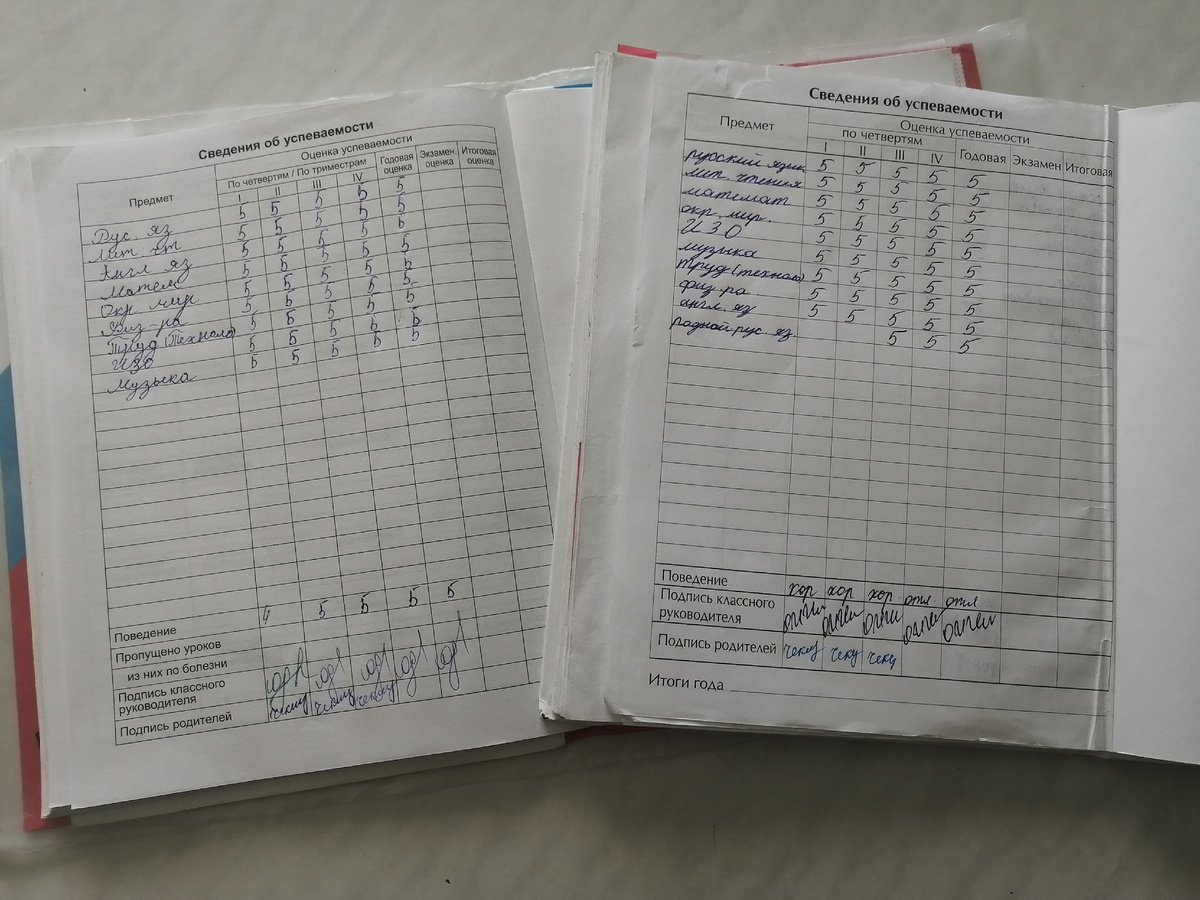 Сведения об успеваемости
Предмет
Оценка успеваемости
По четвертям / По триместрам
Годовая оценка
Экзамен. оценка
Итоговая оценка
I II III IV
Рус. яз 5 5 5 5 5
Лит чт 5 5 5 5 5
Англ яз 5 5 5 5 5
Матем 5 5 5 5 5
Окр мир 5 5 5 5 5
Физ-ра 5 5 5 5 5
Труд (Техноло) 5 5 5 5 5
ИЗО 5 5 5 5 5
Музыка 5 5 5 5 5
Поведение 4 5 5 5 5
Пропущено уроков
из них по болезни
Подпись классного
руководителя
Подпись родителей
Сведения об успеваемости
Предмет
Оценка успеваемости
по четвертям
I II III IV Годовая Экзамен Итоговая
русский язык 5 5 5 5 5
лит. чтение 5 5 5 5 5
математ 5 5 5 5 5
окр. мир. 5 5 5 5 5
ИЗО 5 5 5 5 5
музыка 5 5 5 5 5
труд (техноло) 5 5 5 5 5
физ-ра 5 5 5 5 5
англ. яз 5 5 5 5 5
родной рус. яз. 5 5 5
Поведение хор хор хор отл. отл
Подпись классного
руководителя
Подпись родителей
Итоги года